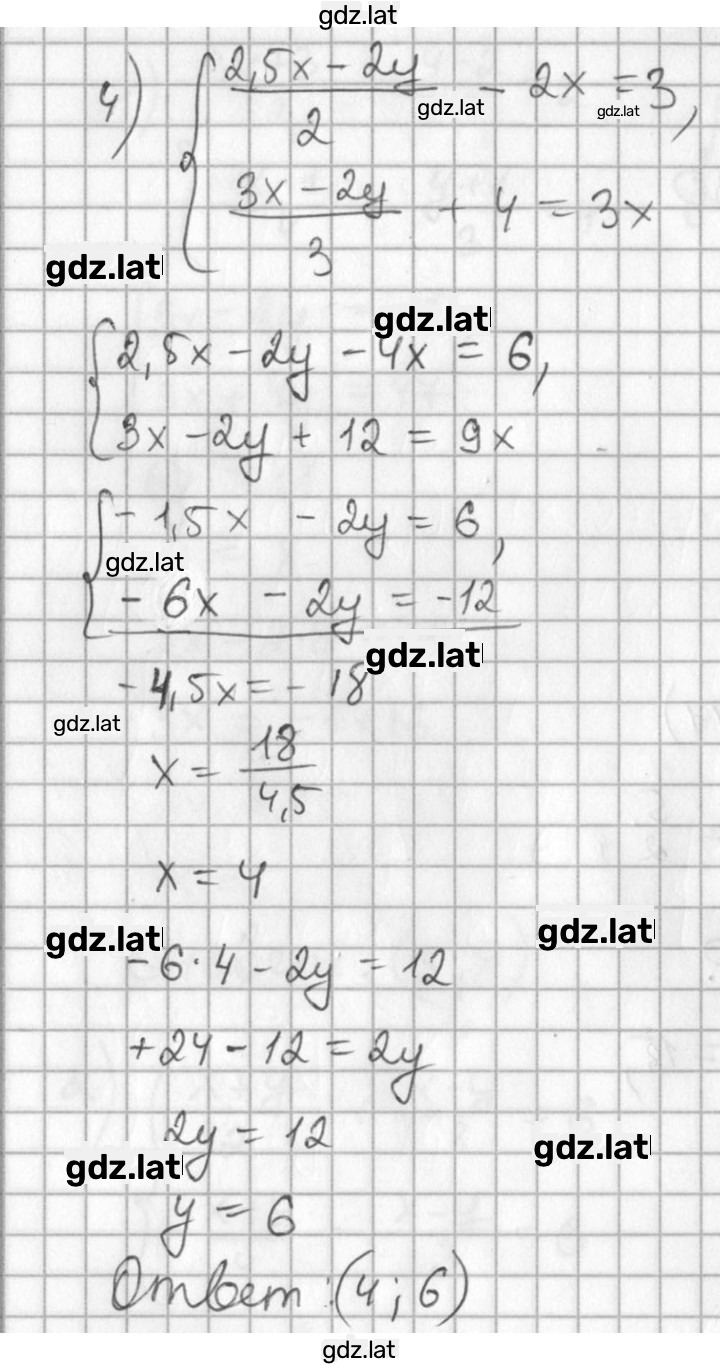 gdz.lat
4) { (2,5x - 2y)/2 - 2x = 3,
gdz.lat gdz.lat
(3x - 2y)/3 + 4 = 3x
gdz.lat
gdz.lat
{ 2,5x - 2y - 4x = 6,
3x - 2y + 12 = 9x
{ - 1,5x - 2y = 6,
gdz.lat
- 6x - 2y = -12
gdz.lat
- 4,5x = - 18
gdz.lat
x = 18/4,5
x = 4
gdz.lat gdz.lat
- 6 · 4 - 2y = 12
+24 - 12 = 2y
2y = 12
gdz.lat gdz.lat
y = 6
Ответ: (4; 6)
gdz.lat